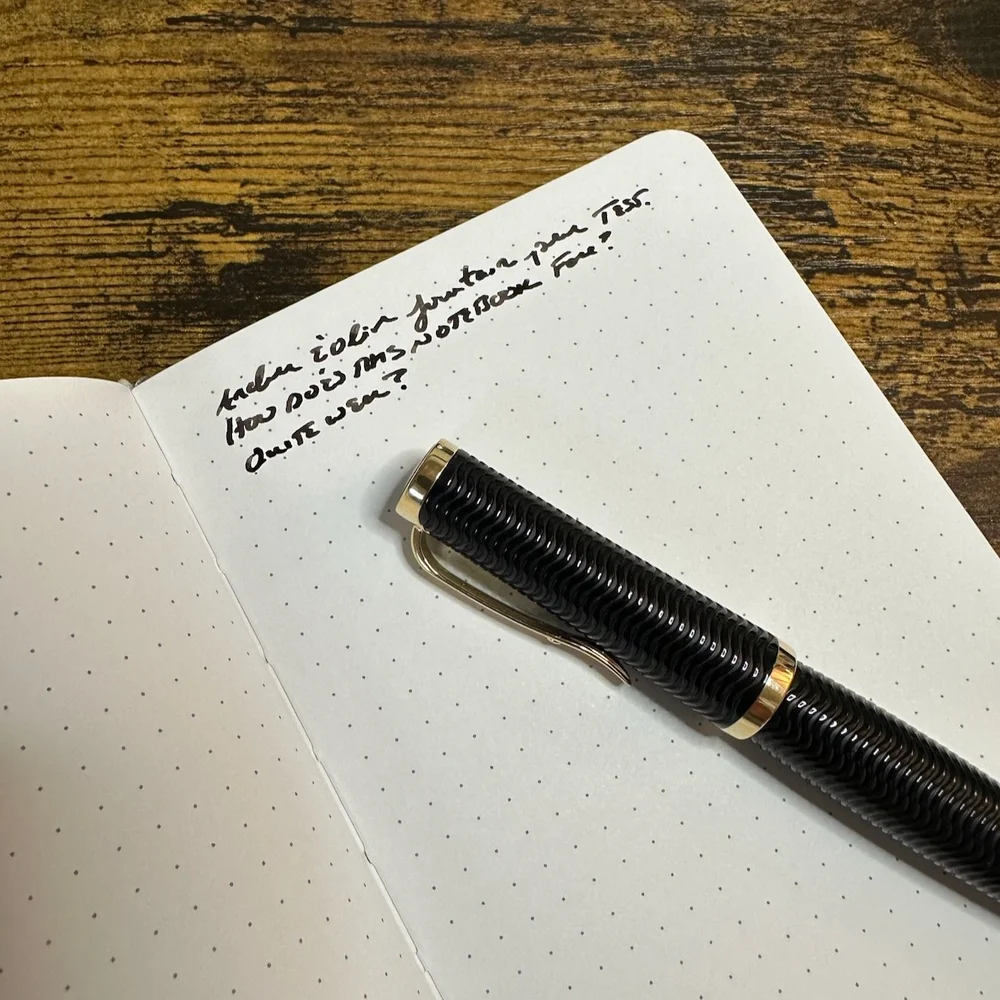 fountain pen TEST.
HOW DOES THIS NOTEBOOK FARE?
QUITE WELL?